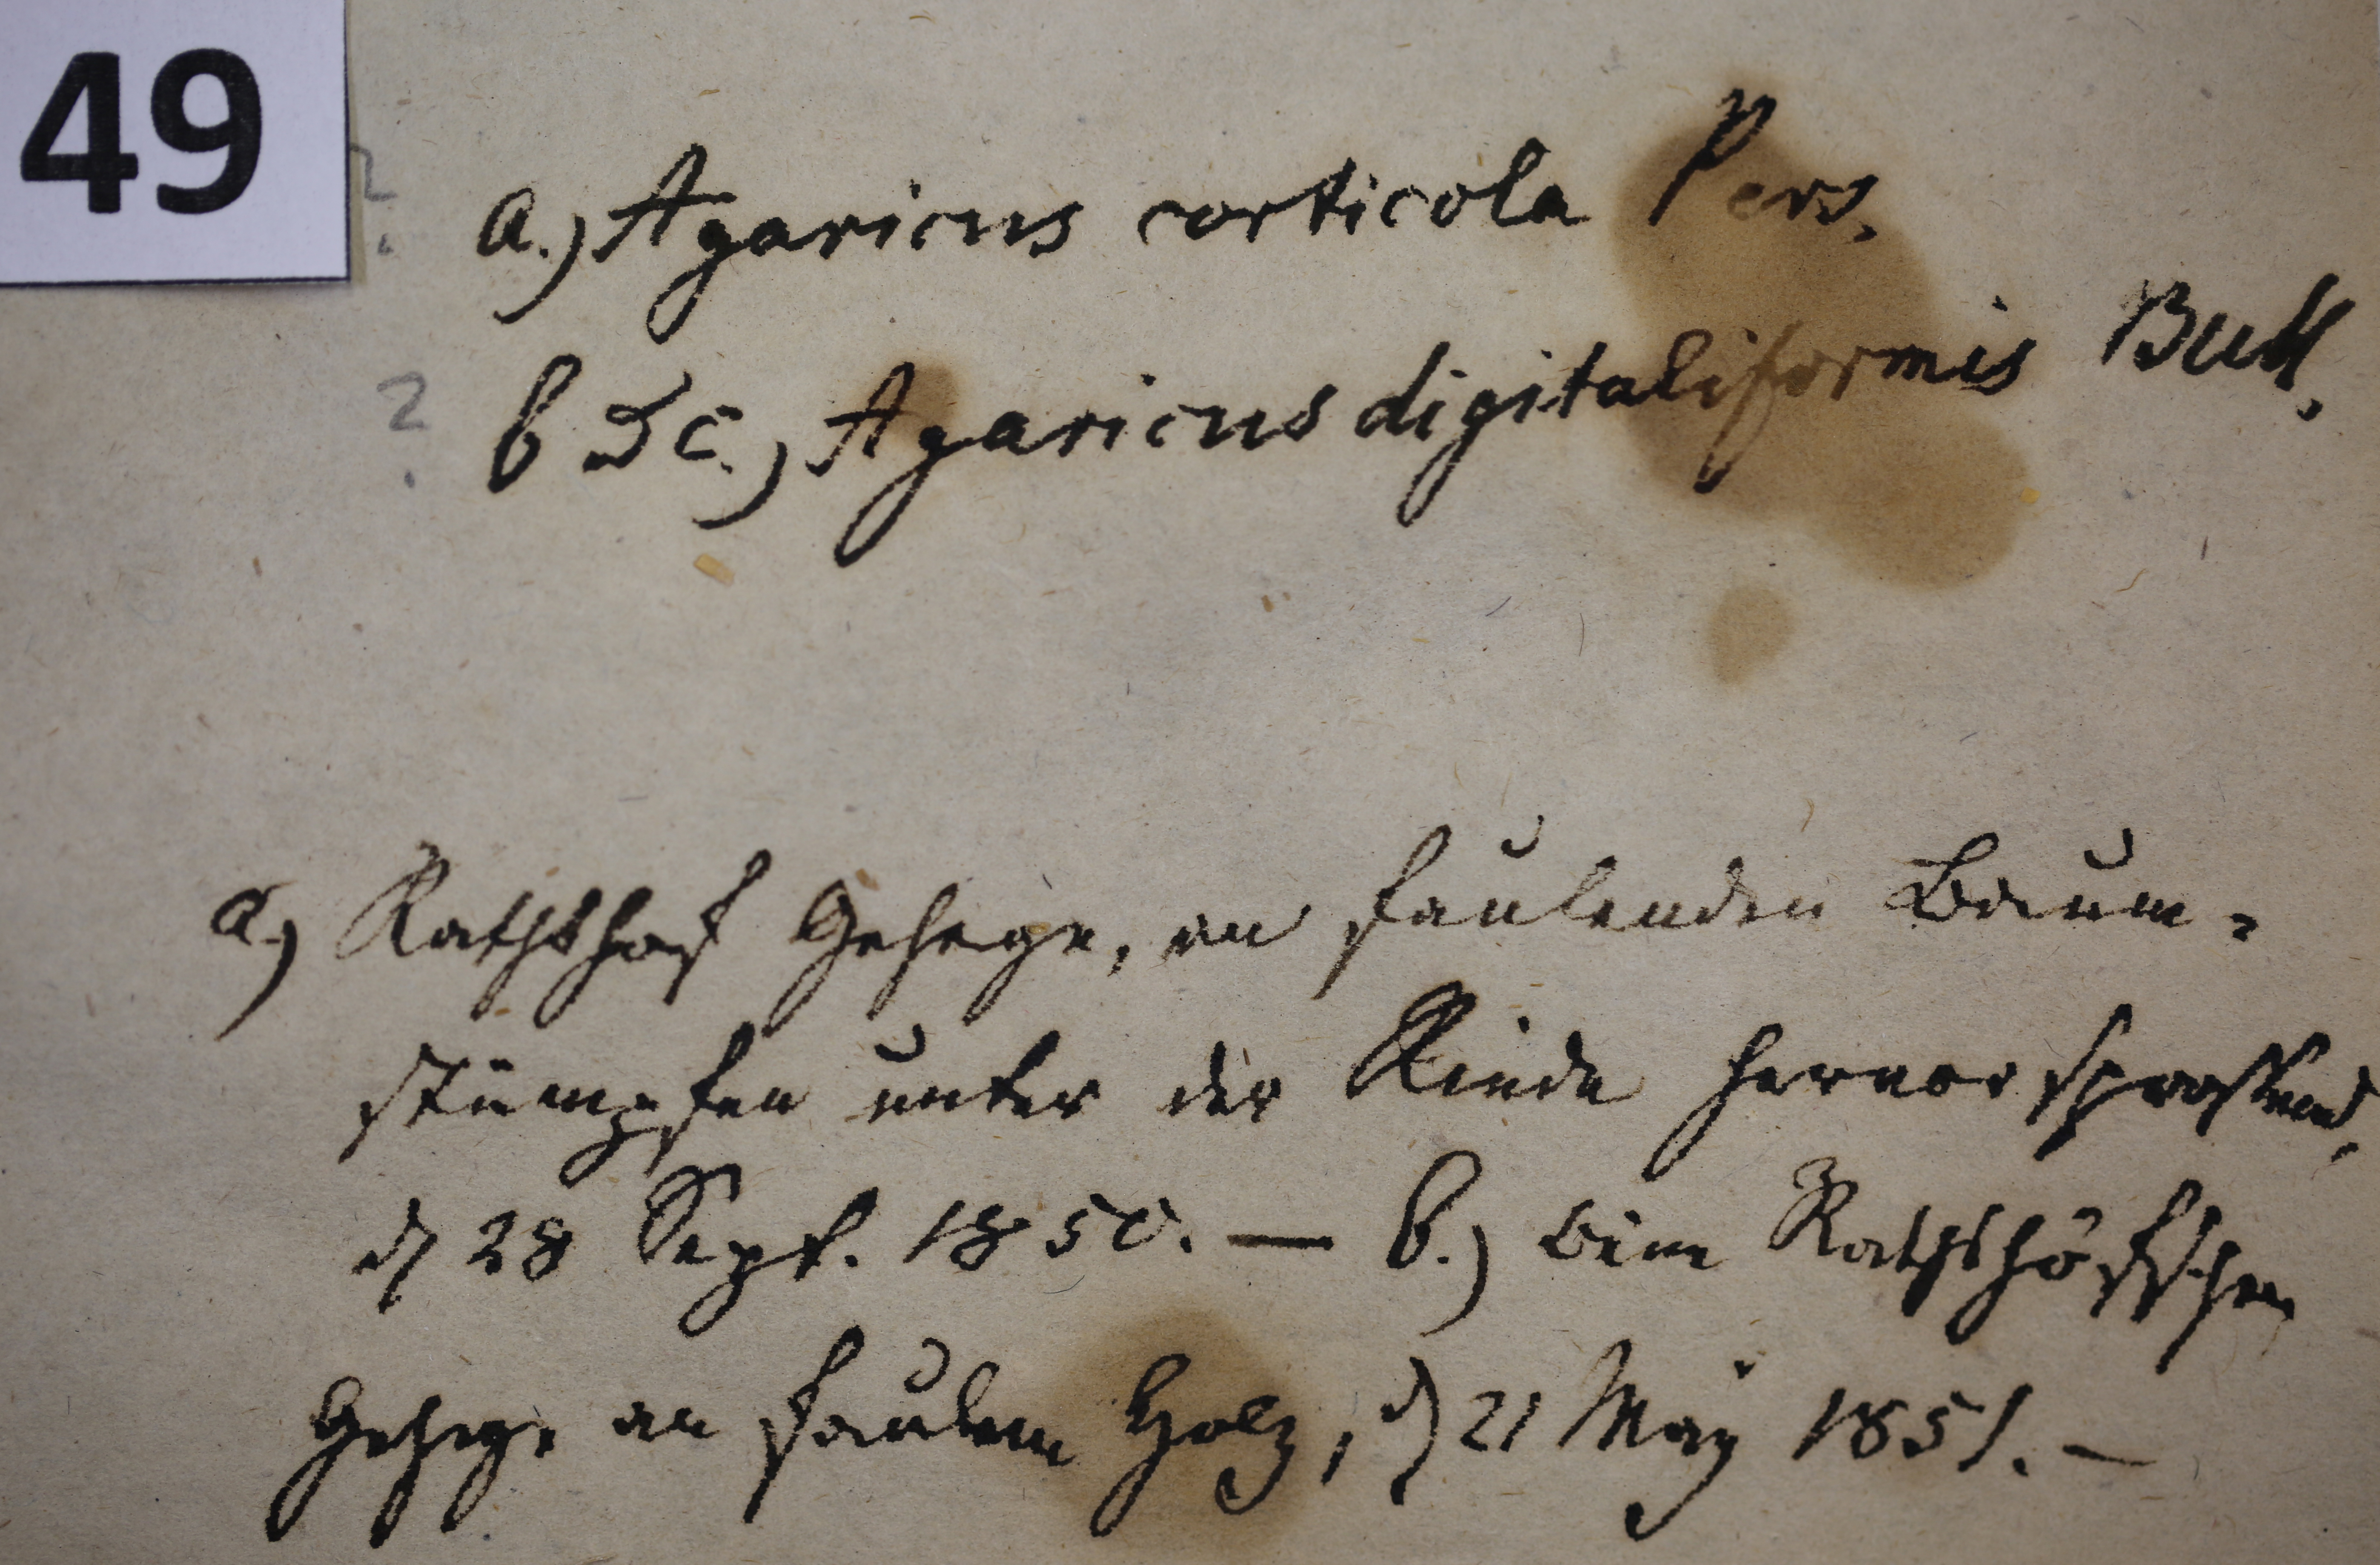 49
? a.) Agaricus corticola Pers.
? b & c.) Agaricus digitaliformis Bull.
a.) Rathshof Gehege, an faulenden Baum-
stümpfen unter der Rinde hervorsprossend,
d 28 Sept. 1850. — b.) beim Rathshöfschen
Gehege an faulem Holz, d 21 May 1851. —